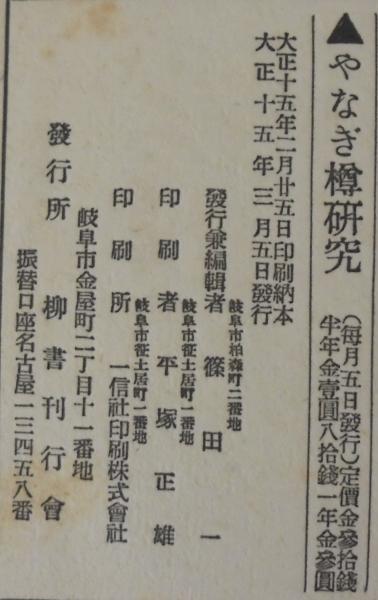 ▲やなぎ樽研究
(每月五日發行)定價金參拾錢
半年金壹圓八拾錢一年金參圓
大正十五年二月廿五日印刷納本
大正十五年三月五日發行
岐阜市柏森町二番地
發行兼編輯者 篠田一
岐阜市征土居町一番地
印刷者 平塚正雄
岐阜市征土居町一番地
印刷所 一信社印刷株式會社
岐阜市金屋町二丁目十一番地
發行所 柳書刊行會
振替口座名古屋一三四五八番